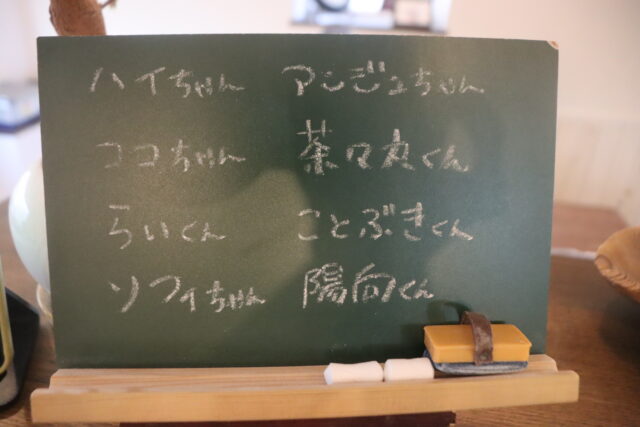 ハイちゃん アンジュちゃん
ココちゃん 茶々丸くん
らいくん ことぶきくん
ソフィちゃん 陽向くん